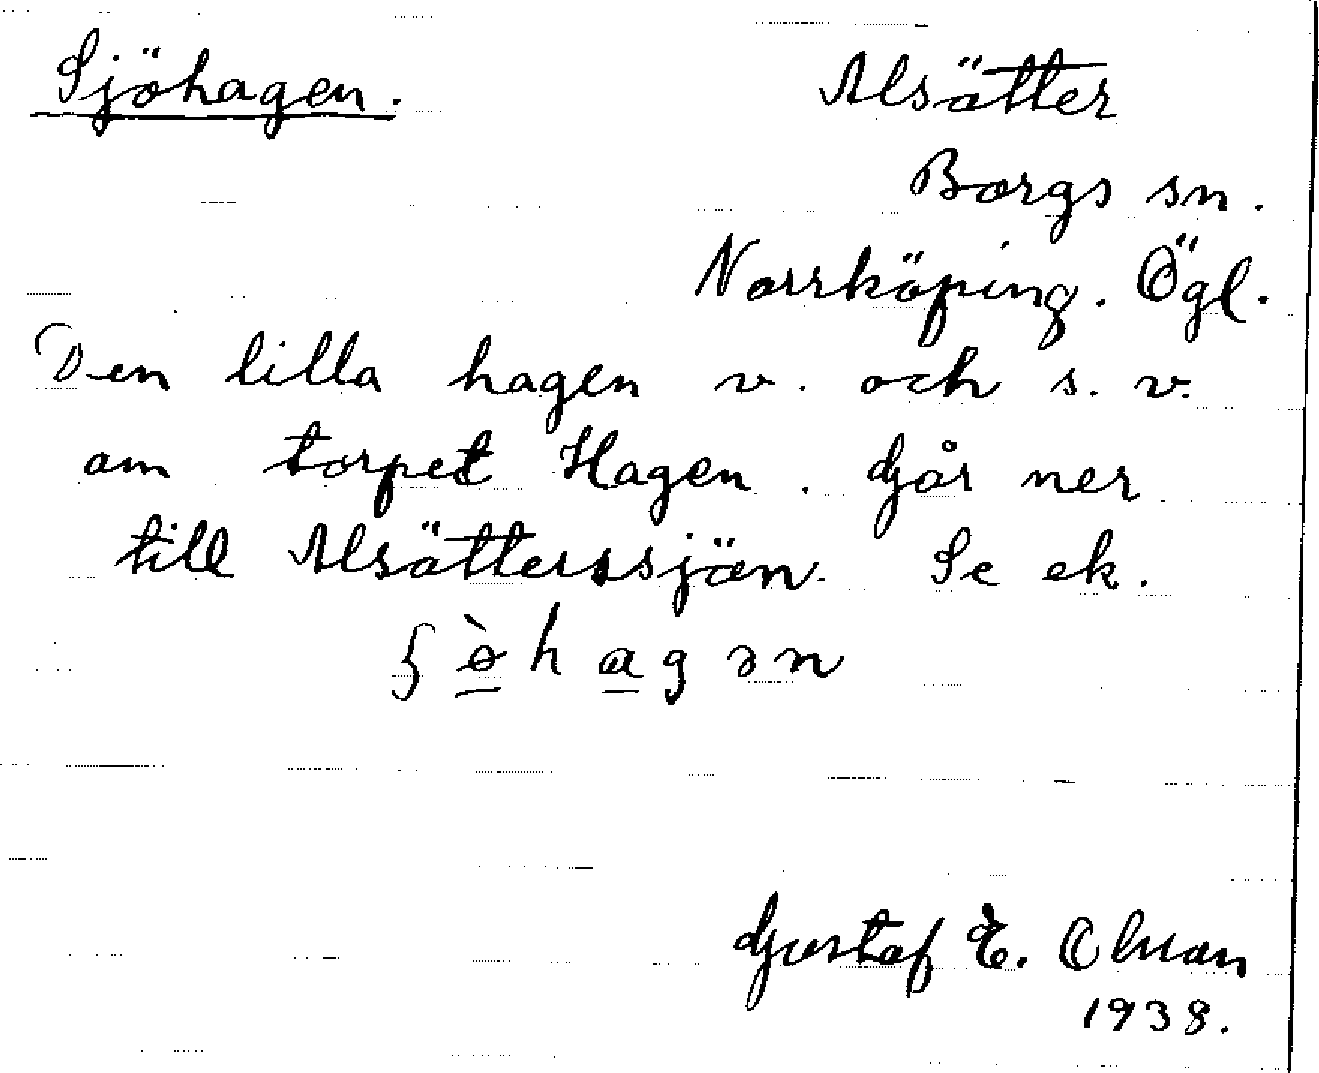 Sjöhagen.
Alsätter
Borgs sn.
Norrköping. Ögl.
Den lilla hagen v. och s. v.
om torpet Hagen. Går ner
till Alsätterssjön. Se ek.
ʃ ö̀ h a g ə n
Gustaf E. Olsson
1938.